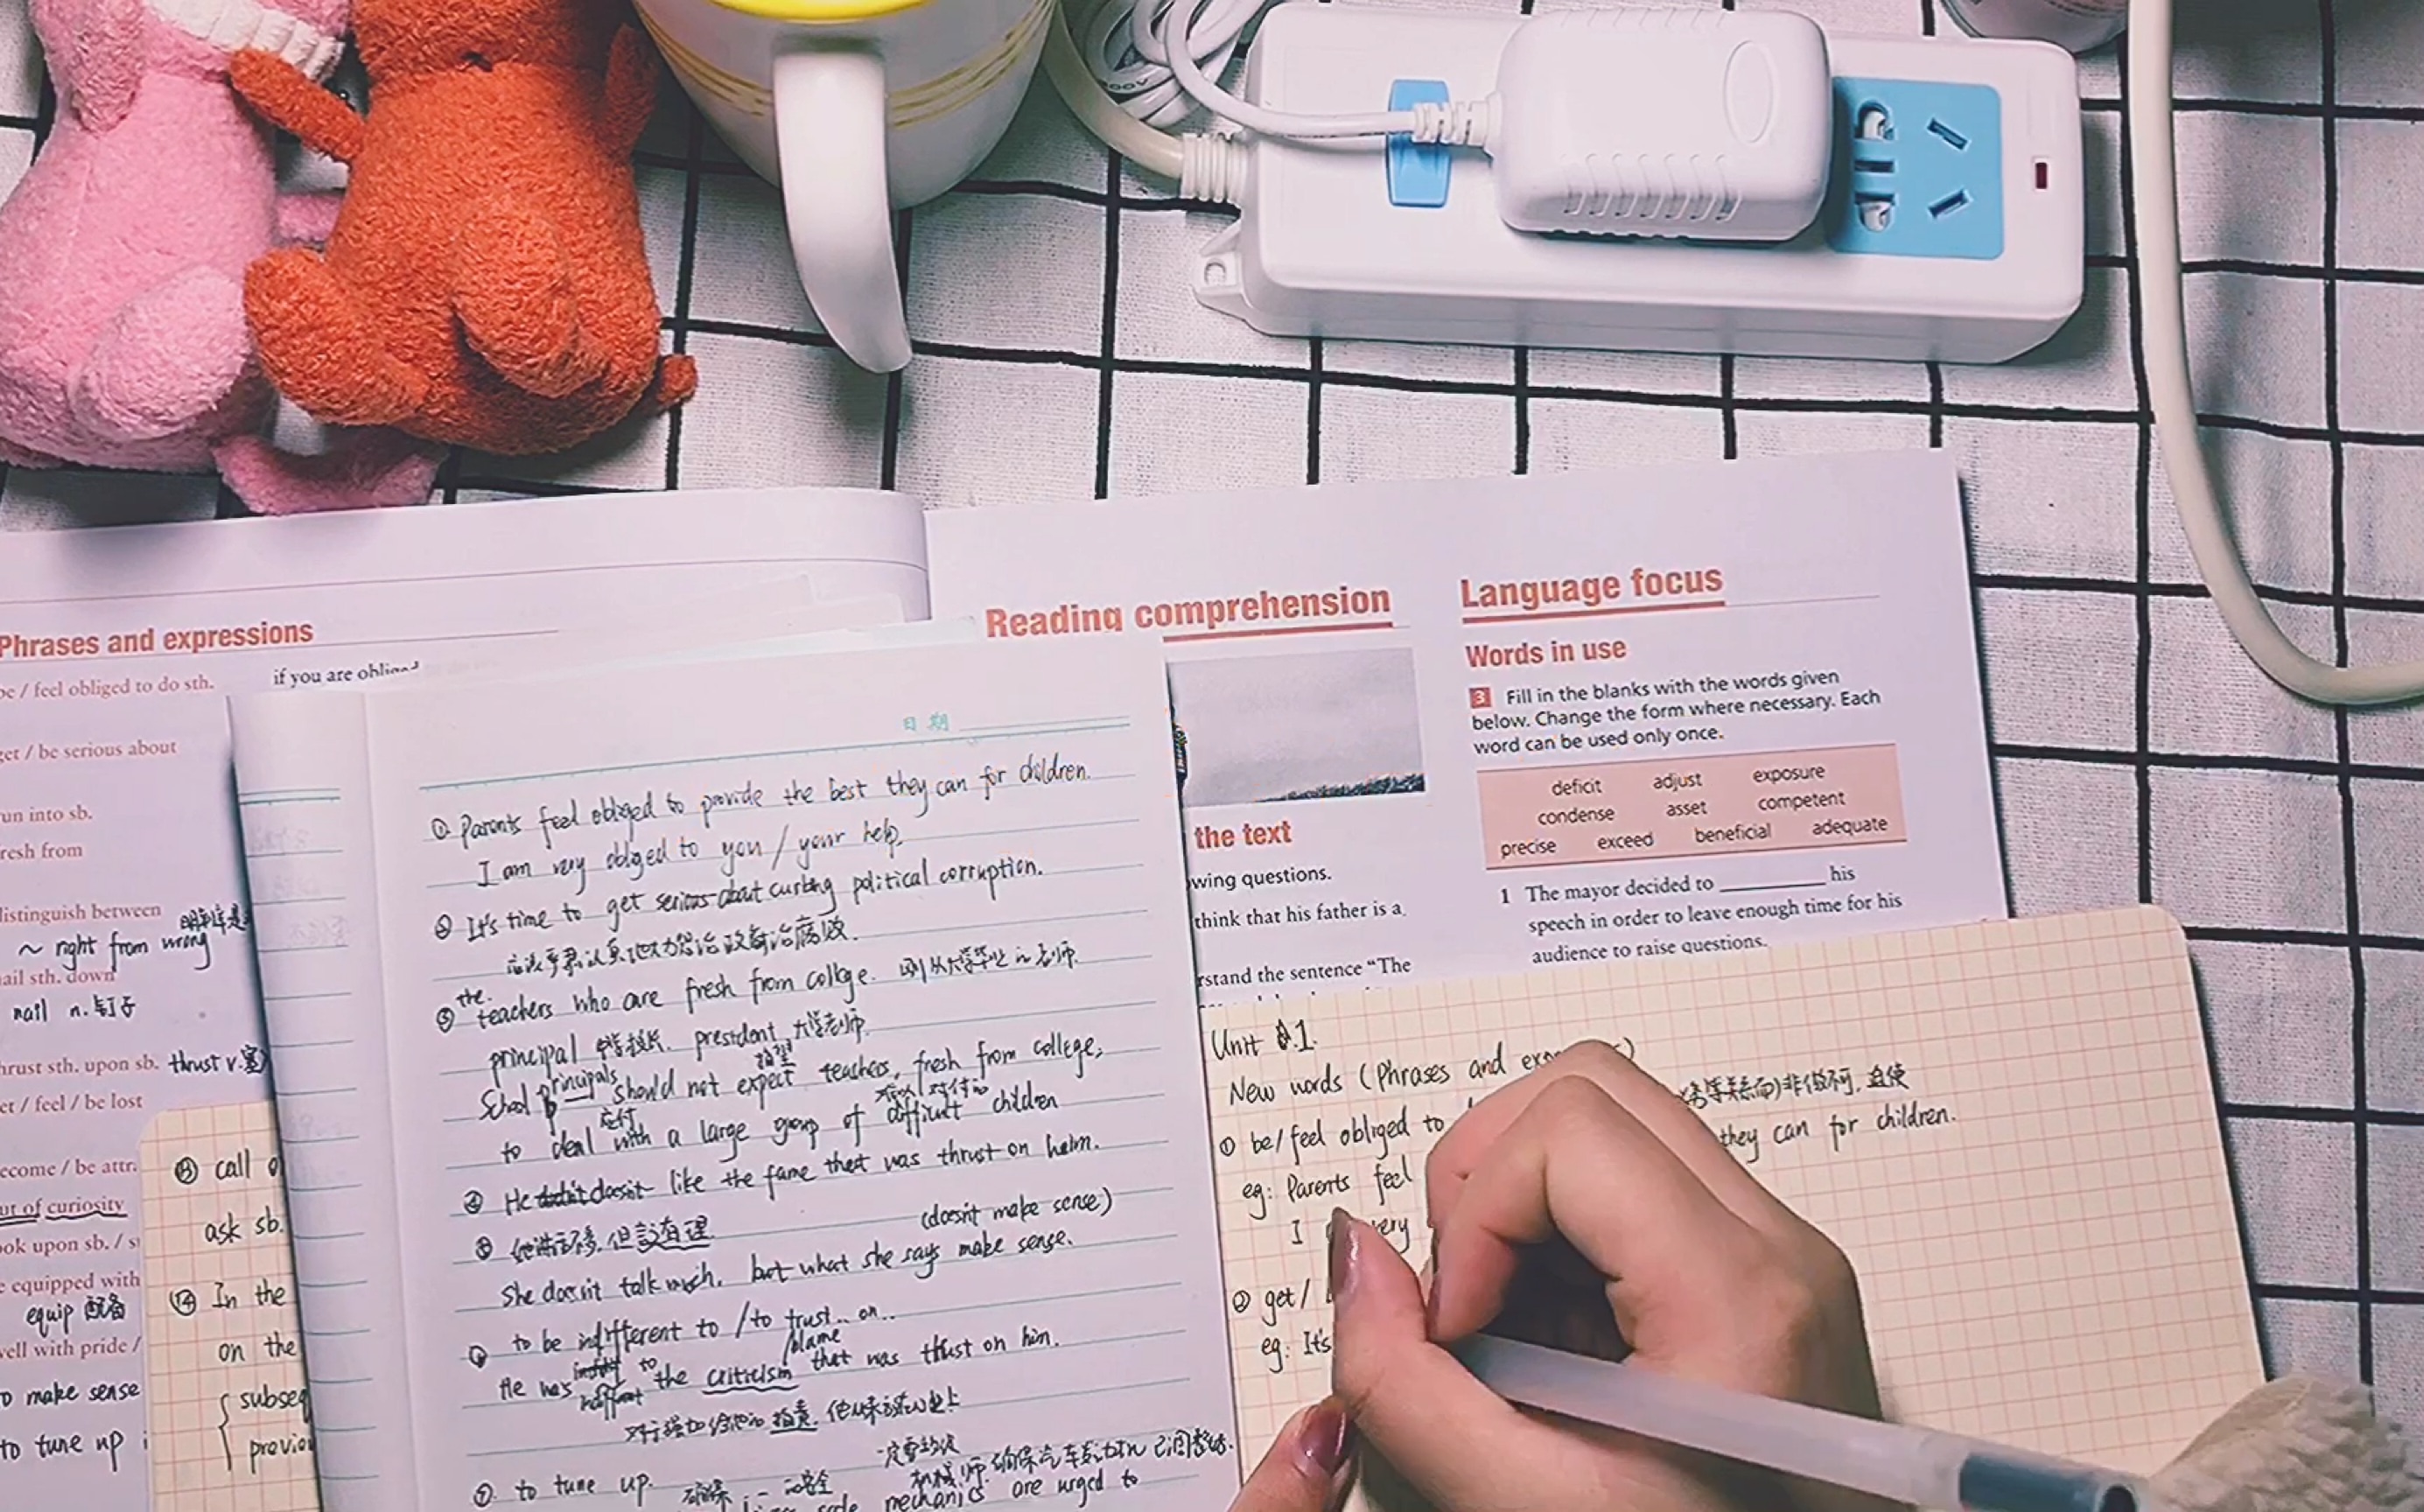 Phrases and expressions
be / feel obliged to do sth.
if you are obliged
get / be serious about
run into sb.
fresh from
distinguish between
~ right from wrong
nail sth. down
nail n. 钉子
thrust sth. upon sb. thrust v.
get / feel / be lost
become / be attr
out of curiosity
look upon sb. / s
be equipped with
equip 配备
swell with pride /
to make sense
to tune up
⑬ call o
ask sb.
⑭ In the
on the
subseq
previou
日期
① Parents feel obliged to provide the best they can for children.
I am very obliged to you / your help.
② It's time to get serious about curbing political corruption.
③ the teachers who are fresh from college. 刚从大学毕业的老师.
principal 中学校长. president 大学
School principals should not expect 指望 teachers, fresh from college,
to deal with 应付 a large group of difficult 难以对付的 children
④ He didn't doesn't like the fame that was thrust on heim.
⑤ 她讲话不多, 但说有理.
(doesn't make sense)
She doesn't talk much, but what she says make sense.
⑥ to be indifferent to / to trust.. on..
blame
He was indifferent to the criticism that was thust on him.
对于强加给他的指责, 他
⑦ to tune up.
mechanics are urged to
Reading comprehension
the text
owing questions.
think that his father is a
rstand the sentence “The
Language focus
Words in use
3 Fill in the blanks with the words given
below. Change the form where necessary. Each
word can be used only once.
deficit adjust exposure
condense asset competent
precise exceed beneficial adequate
1 The mayor decided to __________ his
speech in order to leave enough time for his
audience to raise questions.
Unit 1.
New words (Phrases and
① be/feel obliged to 非做不可, 迫使
eg: Parents feel they can for children.
I very
② get/
eg: It's